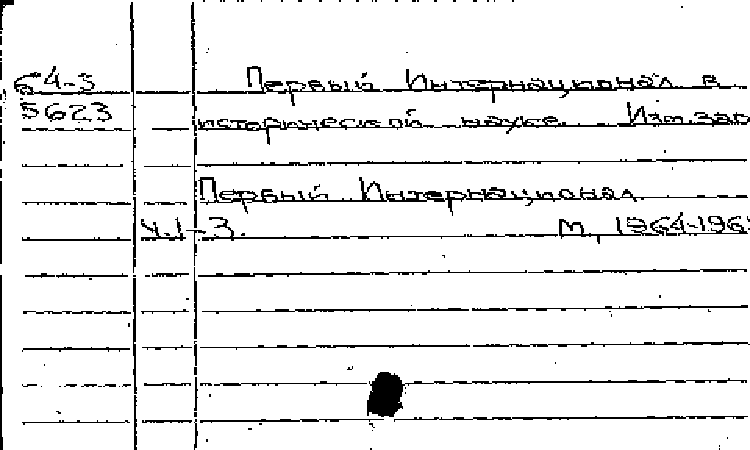 64-3
5623
Первый Интернационал в
исторической науке. Изд. зао
Первый Интернационал
Ч.1-3. М., 1964-196